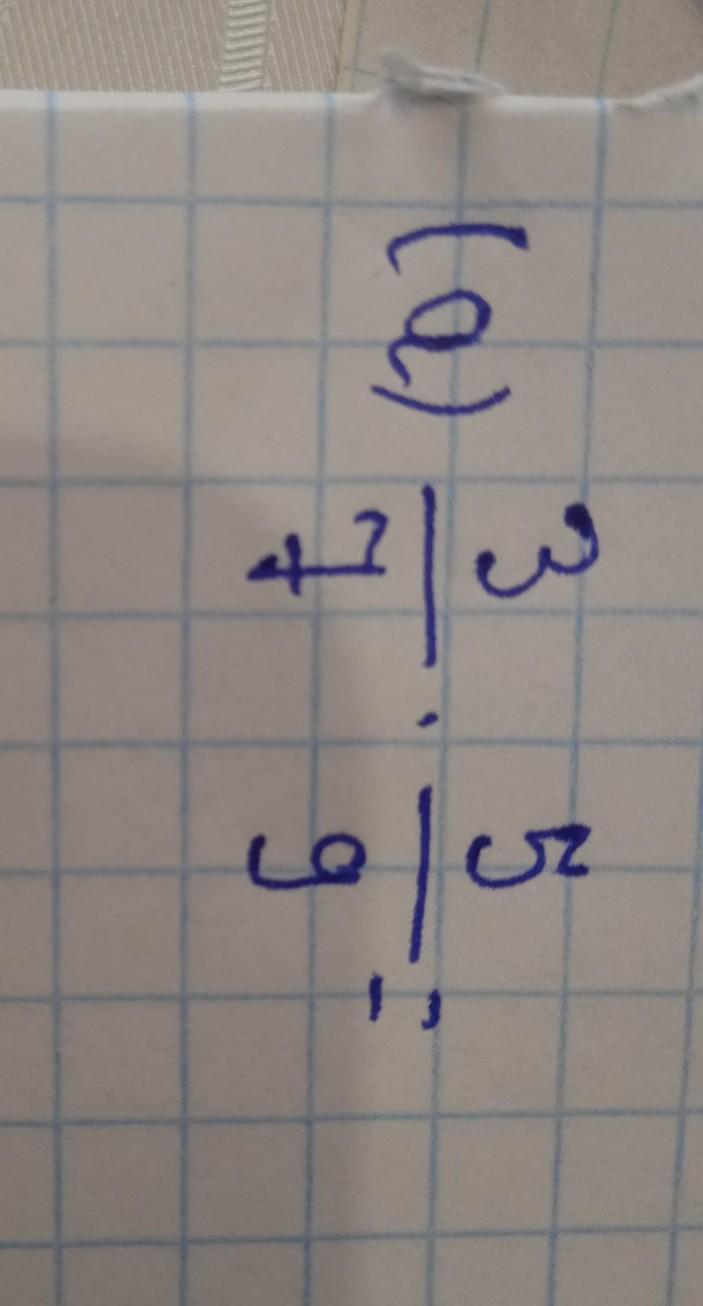 (a) 3/7 · 5/9 =